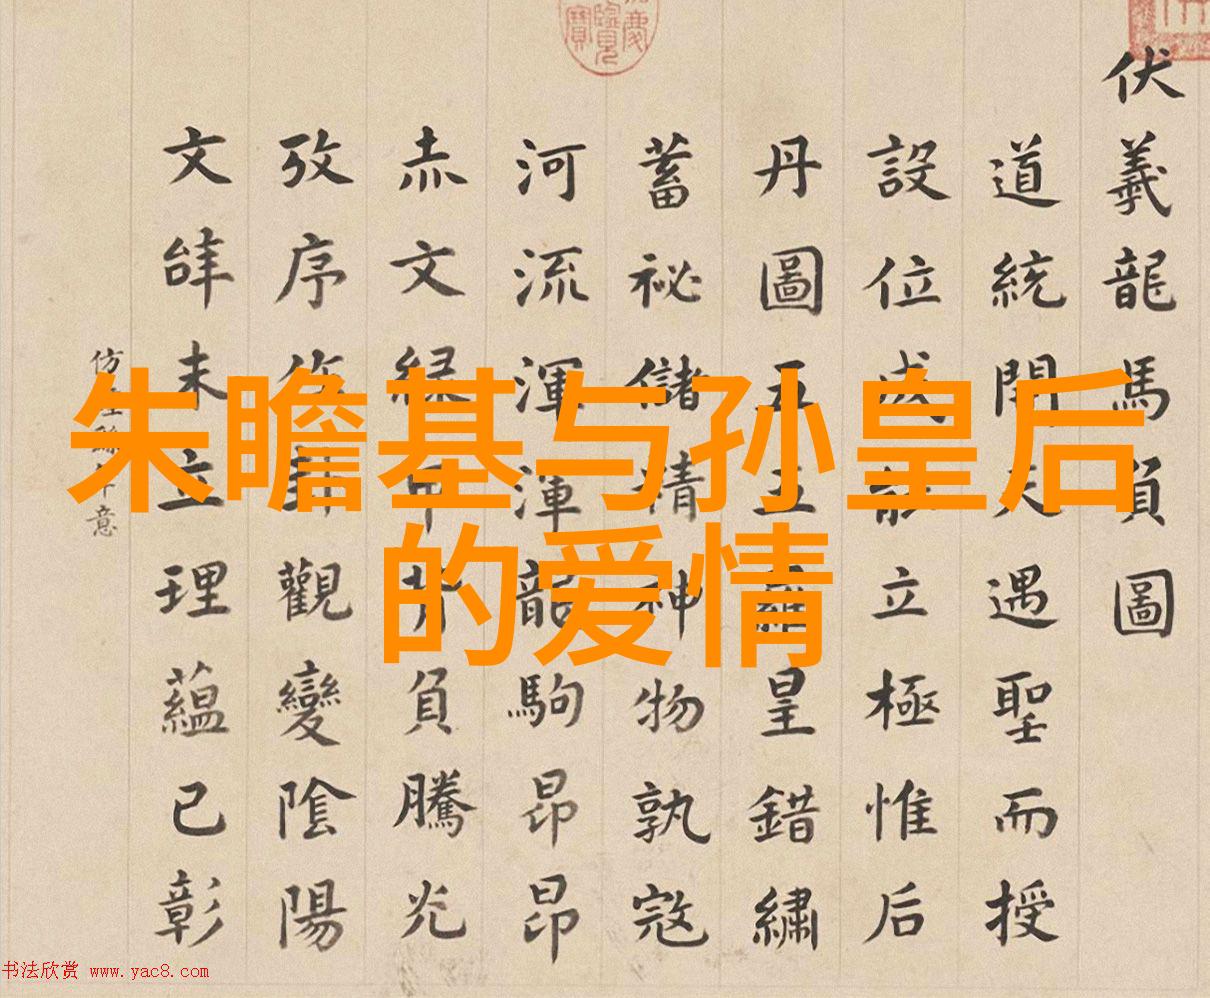 朱瞻基与孙皇后
的爱情
伏羲龍馬負圖
道統開天遇聖而授
設位成能立極惟后
丹圖五羅皇錯繡
蓄祕儲精神物孰寇
河流渾渾龍駒昂昂
赤文緑甲背負騰光
攷序觀變陰陽
文辝未立理蘊已彰
仿意
书法欣赏 www.yac8.com